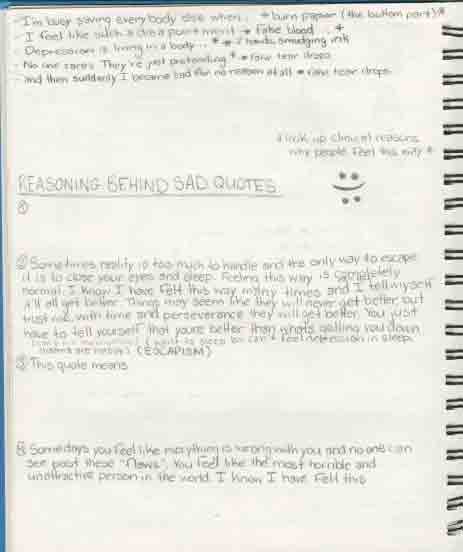 - I'm busy saving everybody else when... * burn paper (the bottom part) *
- I feel like such a disappointment → fake blood ... *
- Depression is living in a body... * → hands smudging ink
- No one cares. They're just pretending * → fake tear drops
- and then suddenly I became sad for no reason at all → fake tear drops
* look up clinical reasons
why people feel this way *
REASONING BEHIND SAD QUOTES
①
② Sometimes reality is too much to handle and the only way to escape
it is to close your eyes and sleep. Feeling this way is completely
normal. I know I have felt this way many times and I tell myself
it'll all get better. Things may seem like they will never get better but
trust me, with time and perseverance they will get better. You just
have to tell yourself that you're better than what's pulling you down
(want to sleep bc can't feel depression in sleep,
(ESCAPISM)
③ This quote means
④ Some days you feel like everything is wrong with you and no one can
see past these "flaws". You feel like the most horrible and
unattractive person in the world. I know I have felt this